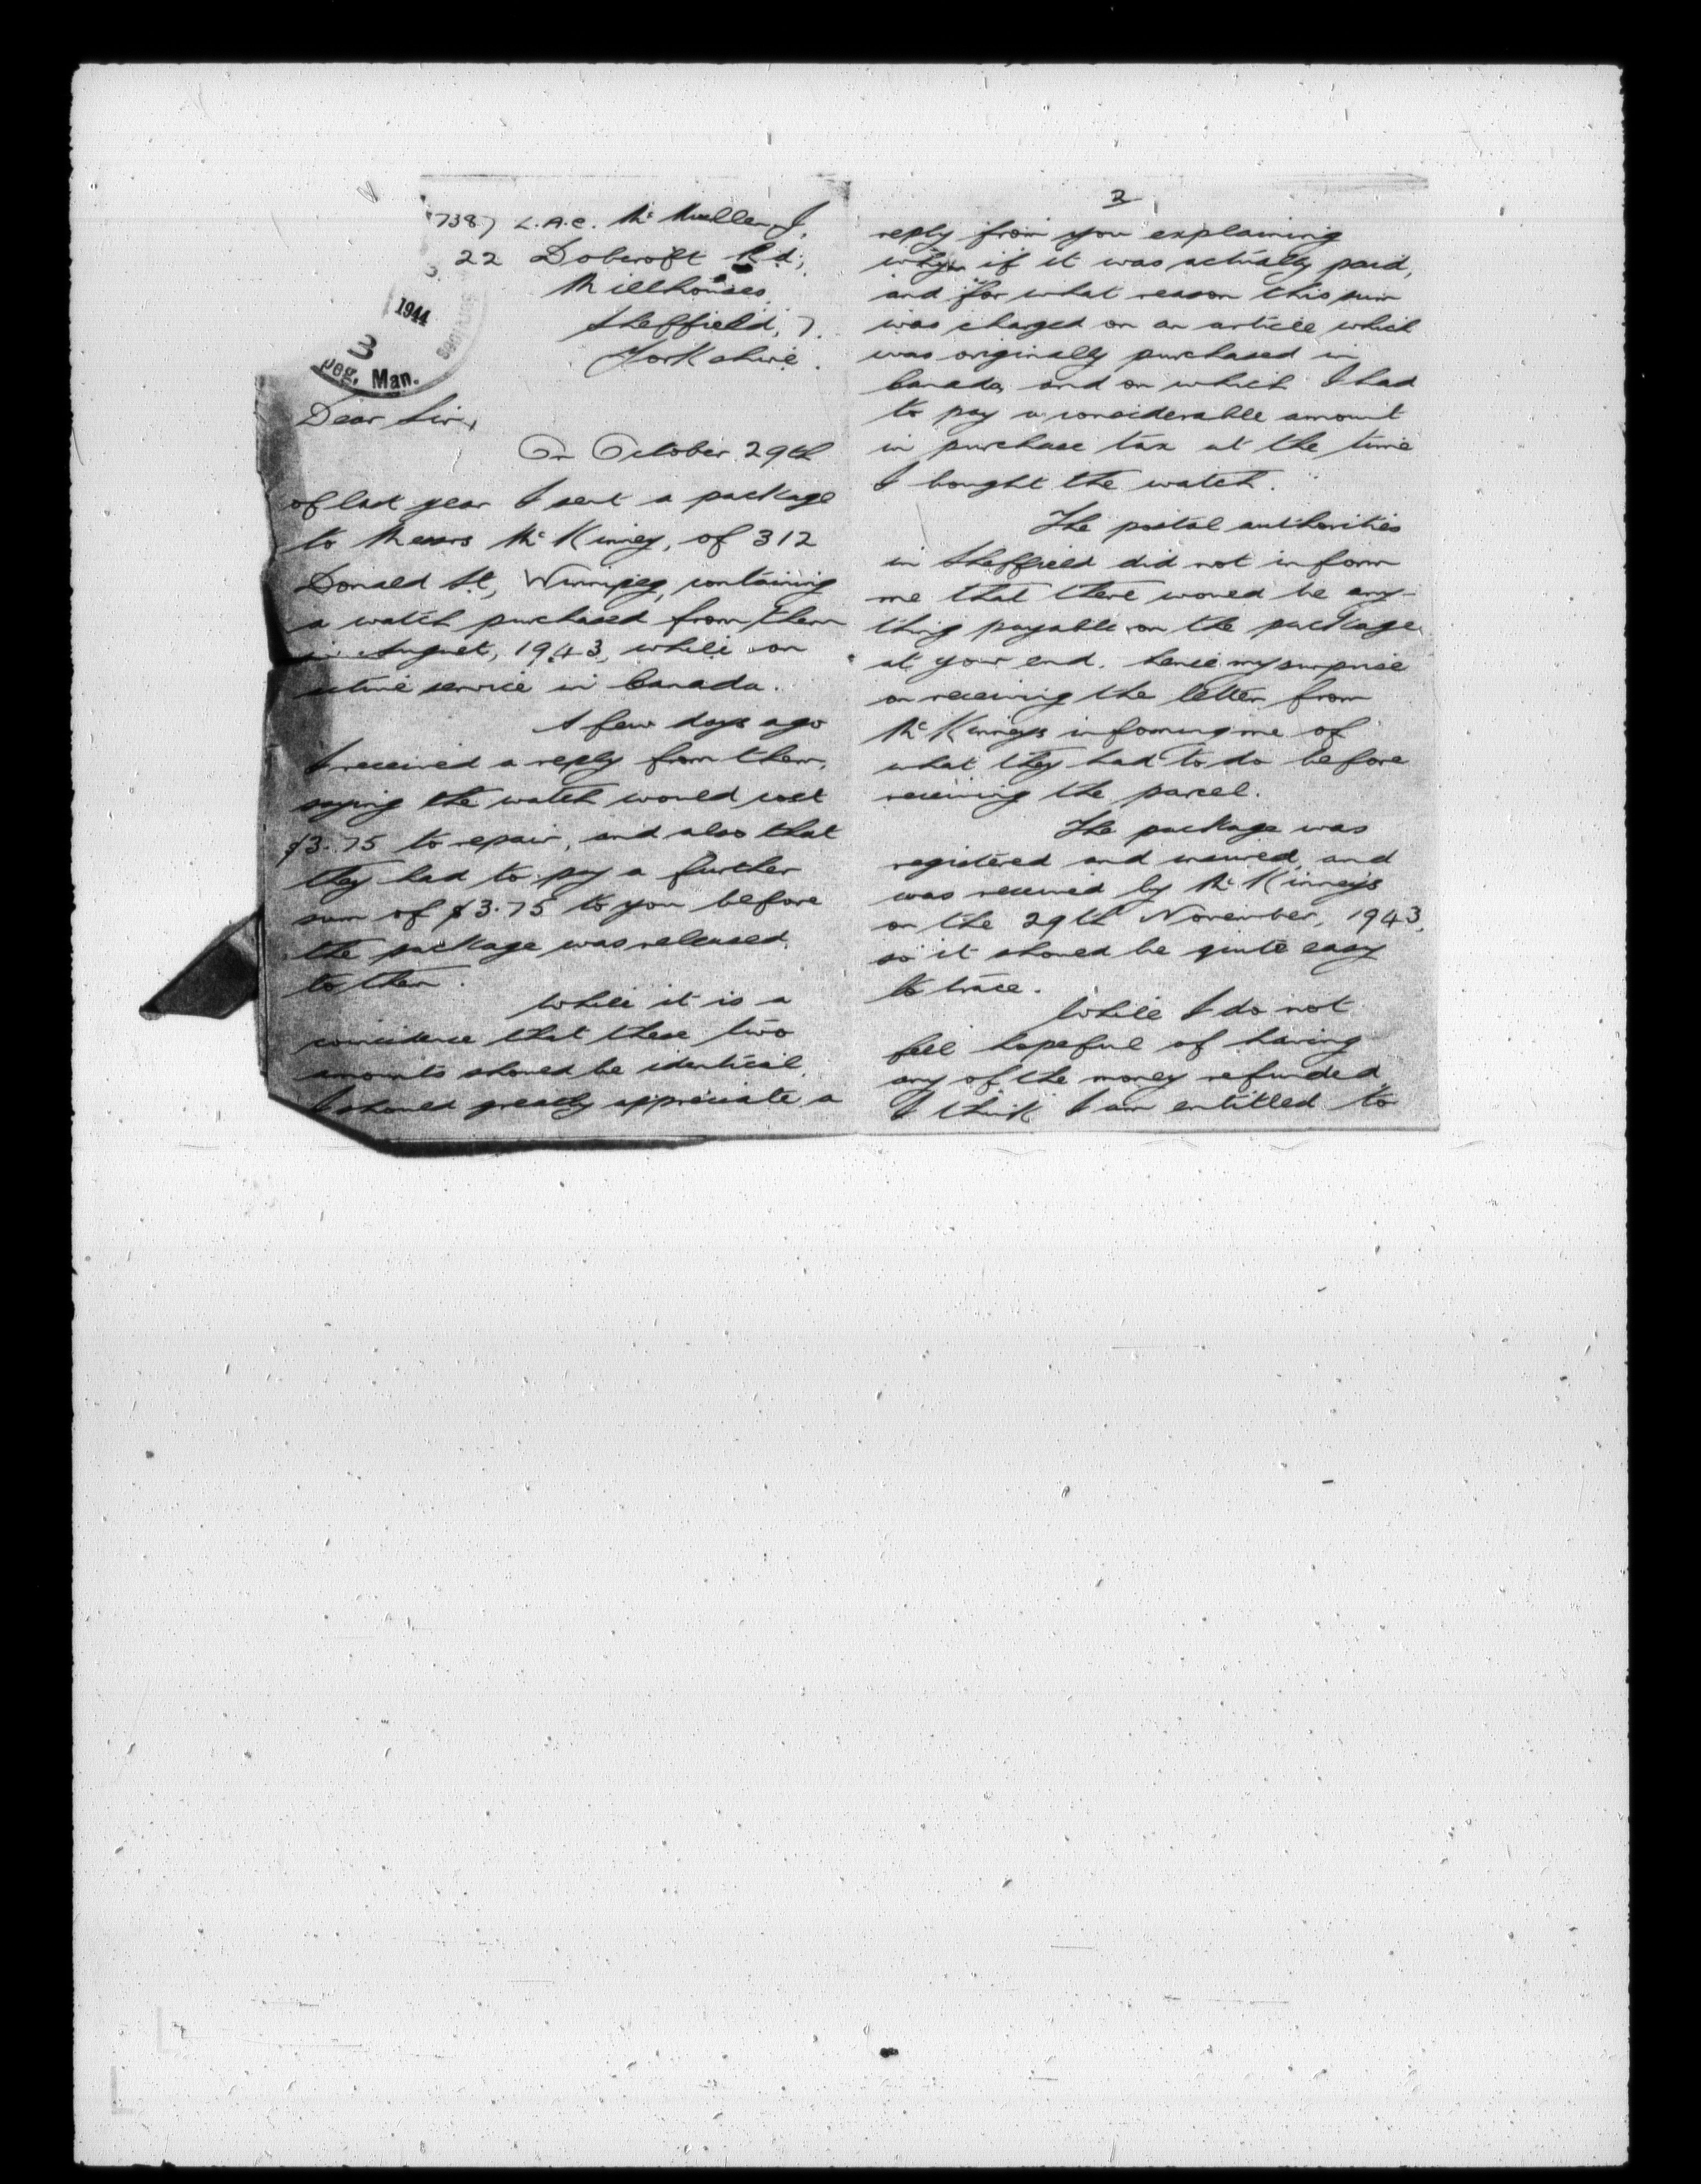 7387 L.A.C. McMullen J.
22 Dobcroft Rd.,
Millhouses,
Sheffield, 7.
Yorkshire.
1944
3
peg, Man.
Dear Sir,
On October 29th
of last year I sent a package
to Messrs McKinney, of 312
Donald St, Winnipeg, containing
a watch purchased from them
in August, 1943, while on
active service in Canada.
A few days ago
I received a reply from them,
saying the watch would cost
$3.75 to repair, and also that
they had to pay a further
sum of $3.75 to you before
the package was released
to them.
While it is a
coincidence that these two
amounts should be identical,
I should greatly appreciate a
2
reply from you explaining
why if it was actually paid,
and for what reason this sum
was charged on an article which
was originally purchased in
Canada, and on which I had
to pay a considerable amount
in purchase tax at the time
I bought the watch.
The postal authorities
in Sheffield did not inform
me that there would be any-
thing payable on the package
at your end. hence my surprise
on receiving the letter from
McKinneys infoming me of
what they had to do before
receiving the parcel.
The package was
registered and insured, and
was received by McKinneys
on the 29th November, 1943,
so it should be quite easy
to trace.
While I do not
feel hopeful of having
any of the money refunded,
I think I am entitled to